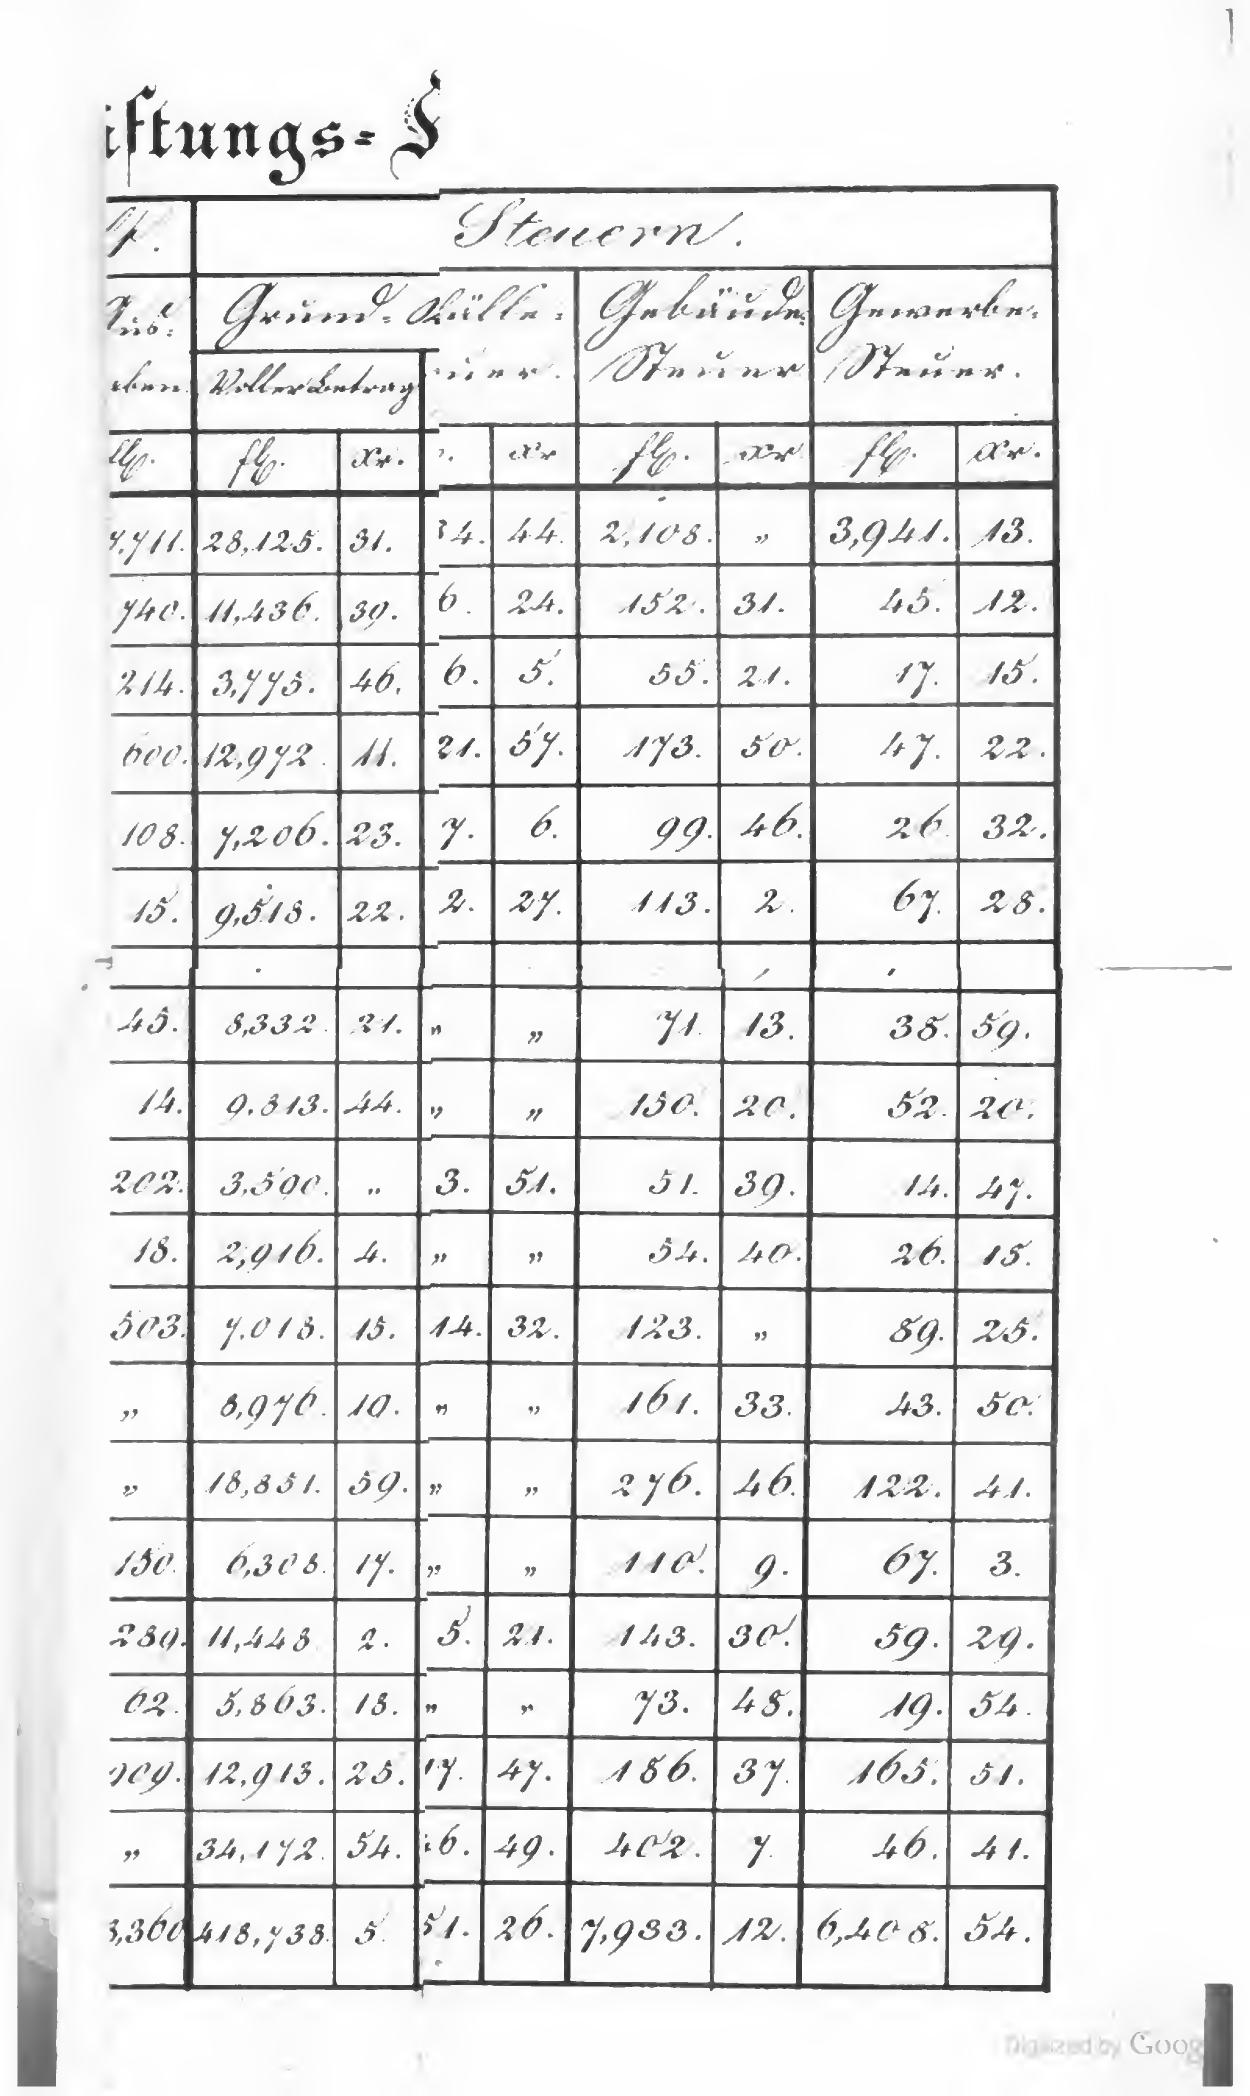 iftungs=
Steuern.
Grund- Fälle-
Gebäude-
Gewerbe-
uer.
Steuer
Steuer.
eben
Voller Betrag
fl. xr. xr fl. xr fl. xr.
7,711. 28,125. 31. 34. 44. 2,108. „ 3,941. 13.
740. 11,436. 39. 6. 24. 152. 31. 45. 12.
214. 3,775. 46. 6. 5. 55. 21. 17. 15.
600. 12,972. 11. 21. 57. 173. 50. 47. 22.
108. 7,206. 23. 7. 6. 99. 46. 26. 32.
15. 9,518. 22. 2. 27. 113. 2. 67. 28.
45. 8,332. 21. „ „ 71. 13. 38. 59.
14. 9.813. 44. „ „ 150. 20. 52. 20.
202. 3,590. „ 3. 51. 51. 39. 14. 47.
18. 2,916. 4. „ „ 54. 40. 26. 15.
503. 7.018. 15. 14. 32. 123. „ 89. 25.
„ 8,976. 19. „ „ 161. 33. 43. 50.
„ 18,851. 59. „ „ 276. 46. 122. 41.
150. 6,308. 17. „ „ 110. 9. 67. 3.
289. 11,448 2. 5. 21. 143. 30. 59. 29.
62. 5,863. 18. „ „ 73. 48. 19. 54.
909. 12,913. 25. 17. 47. 186. 37. 165. 51.
„ 34,172. 54. 6. 49. 402. 7. 46. 41.
3,360 418,738. 5. 51. 26. 7,933. 12. 6,408. 54.
Digitized by Goog